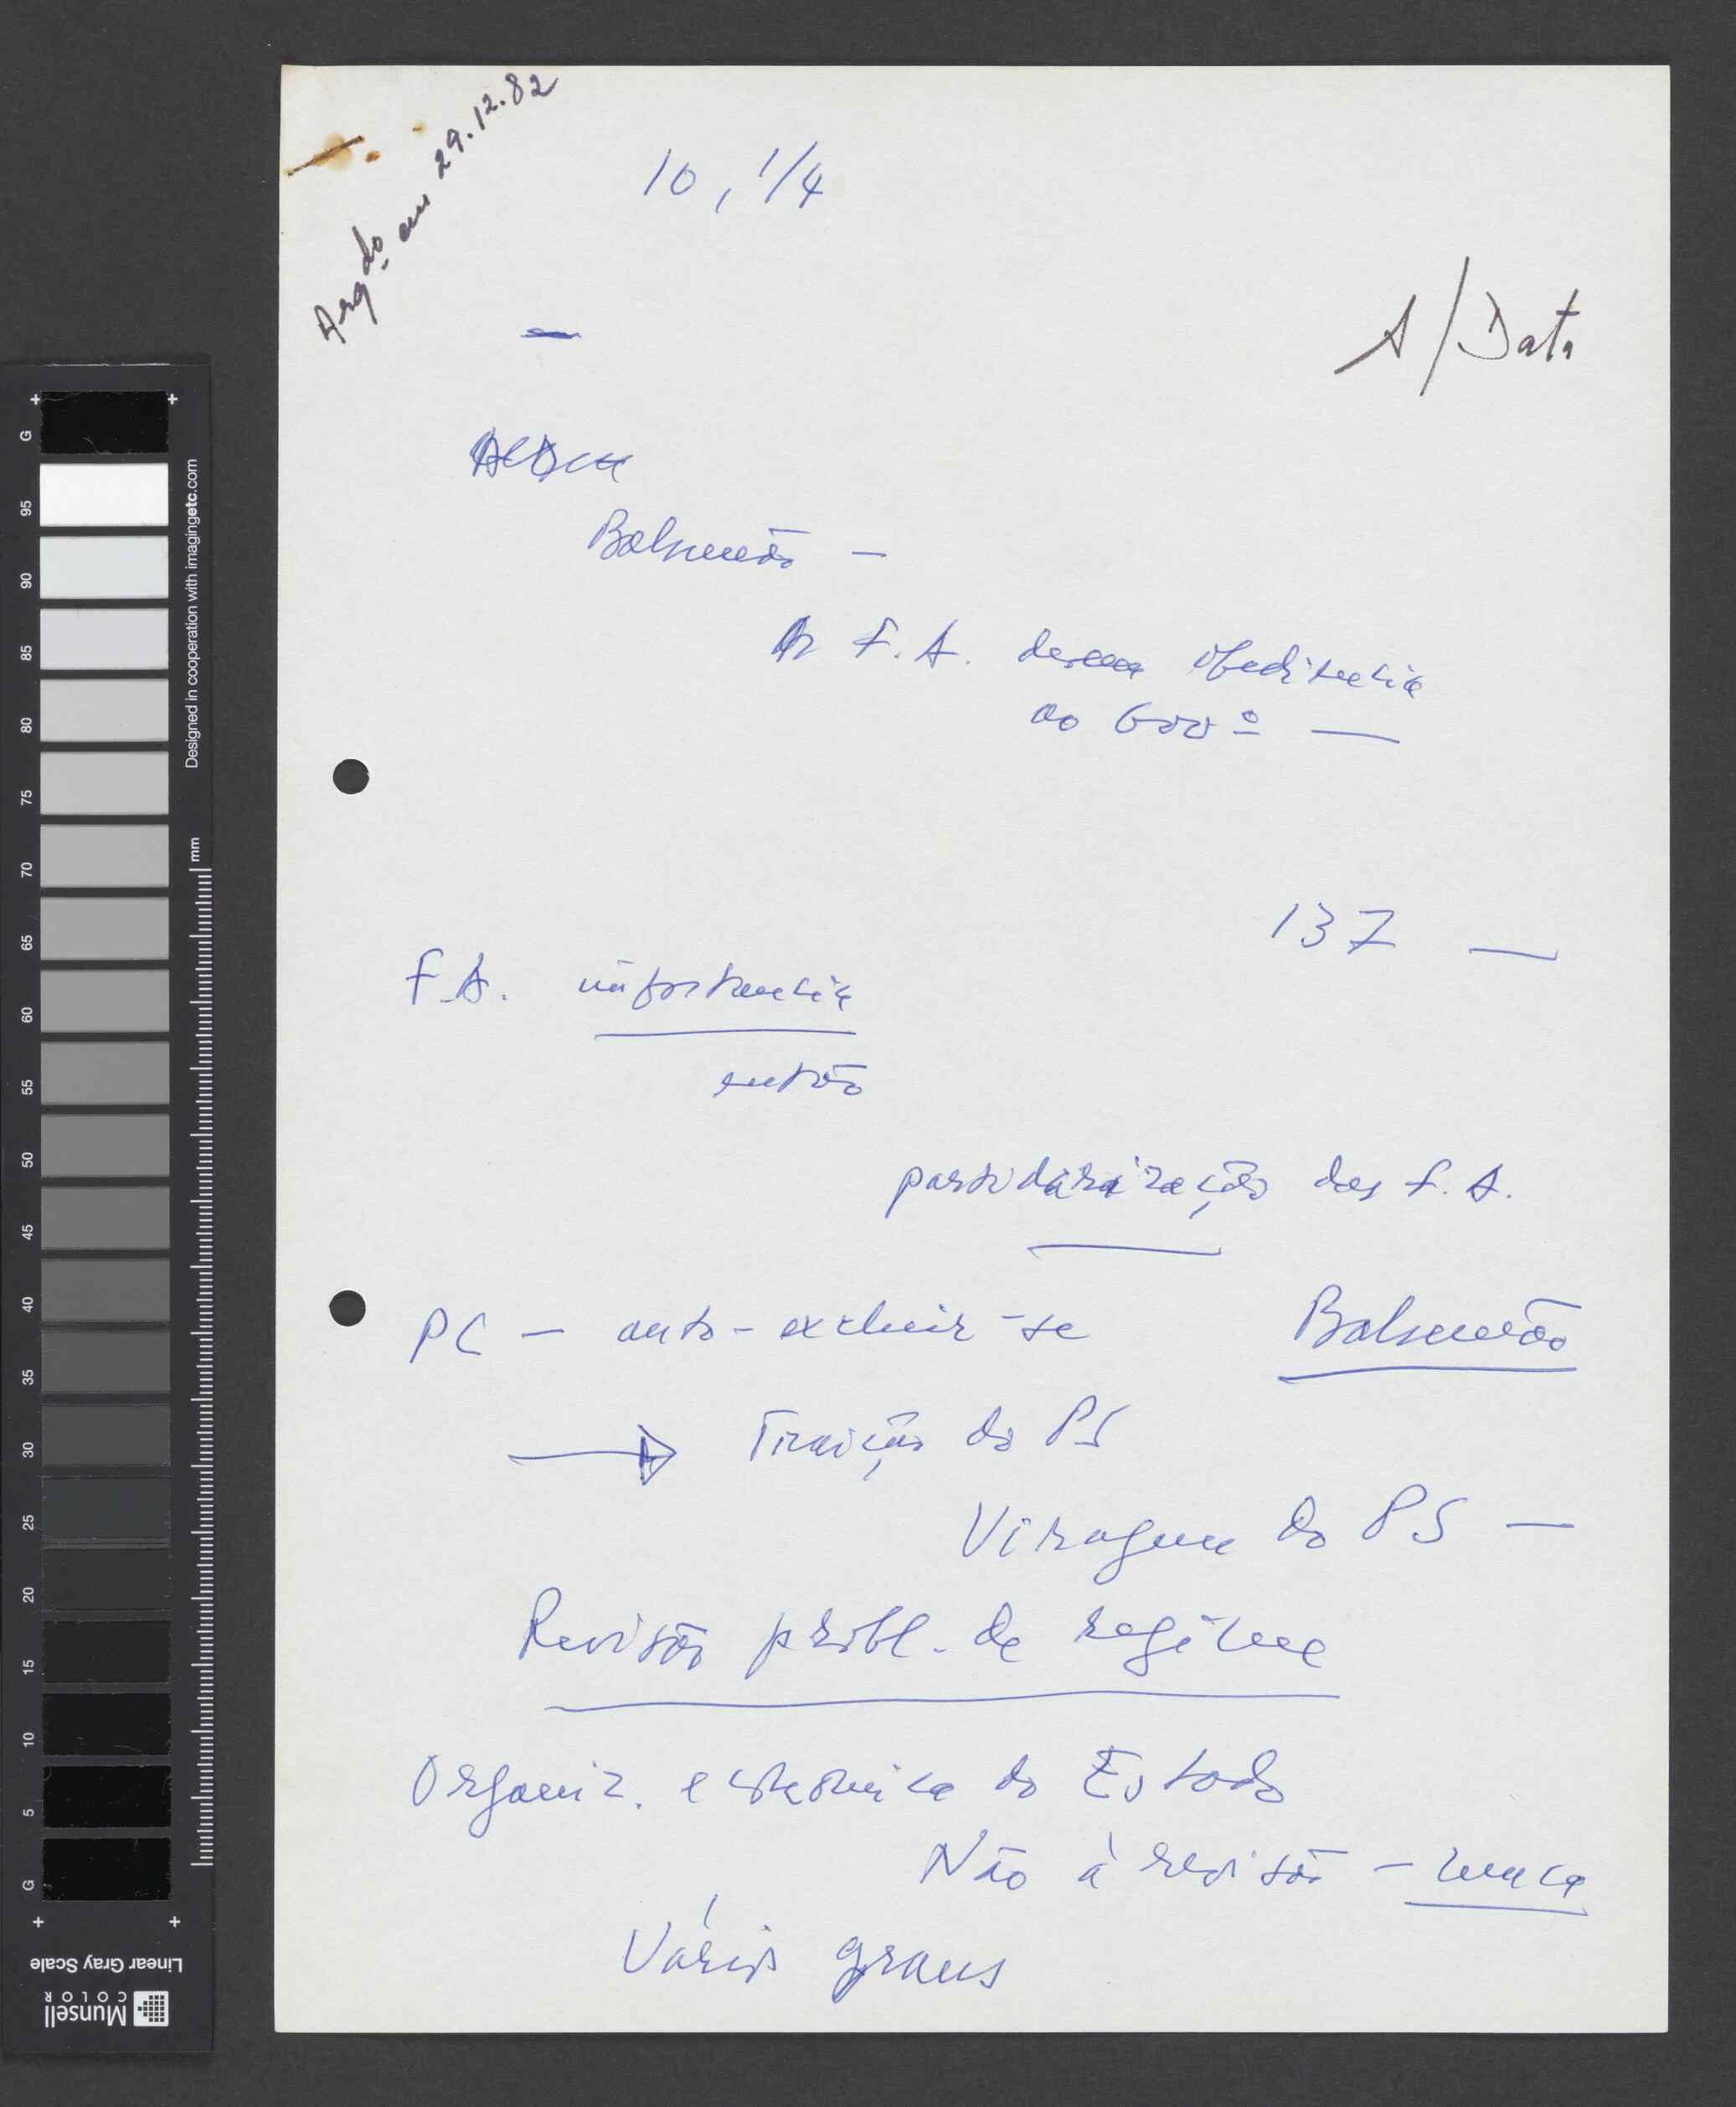 Arq.do em 29.12.82
10, 1/4
A/Data
Balsemão —
As F.A. devem obediência
ao Gov.º —
137 —
F.A. importância
então
partidarização das F.A.
PC — auto-excluir-se
Balsemão
Traição do PS
Viragem do PS —
Revisão probl. de regime
Organiz. económica do Estado
Não à revisão — nunca
Vários graus
G
95
90
85
80
75
70
65
60
55
50
45
40
35
30
25
20
15
10
5
G
Designed in cooperation with imagingetc.com
mm
Munsell
COLOR
Linear Gray Scale